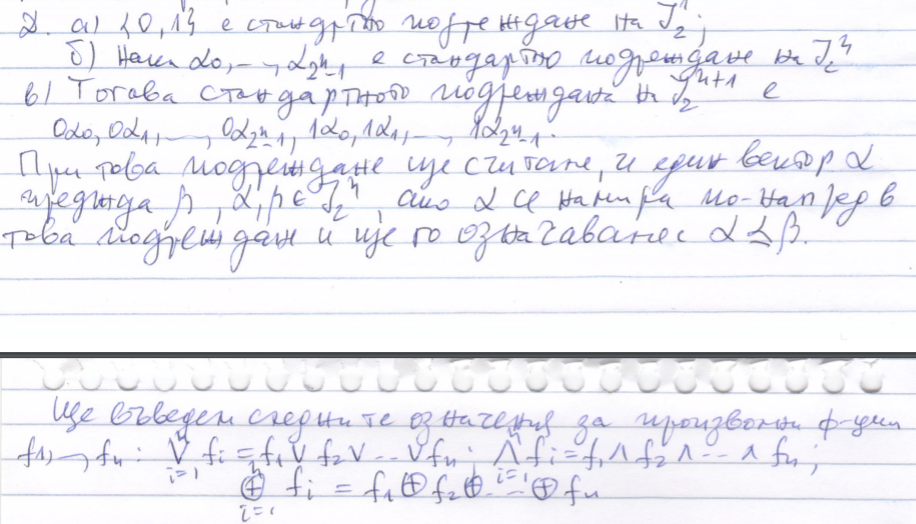 D. а) {0, 1} е стандартно подреждане на J₂¹;
б) Нека α₀, ..., α_{2ⁿ-1} е стандартно подреждане на J₂ⁿ
в) Тогава стандартното подреждане на J₂ⁿ⁺¹ е
0α₀, 0α₁, ..., 0α_{2ⁿ-1}, 1α₀, 1α₁, ..., 1α_{2ⁿ-1}.
При това подреждане ще считаме, ч един вектор α
предхожда β, α, β ∈ J₂ⁿ, ако α се намира по-напред в
това подреждане и ще го означаваме с α ≤ β.
Ще въведем следните означения за произволни ф-ции
f₁, ..., fₙ: ⋁ᵢ₌₁ⁿ fᵢ = f₁ ∨ f₂ ∨ ... ∨ fₙ; ⋀ᵢ₌₁ⁿ fᵢ = f₁ ∧ f₂ ∧ ... ∧ fₙ;
⊕ᵢ₌₁ⁿ fᵢ = f₁ ⊕ f₂ ⊕ ... ⊕ fₙ